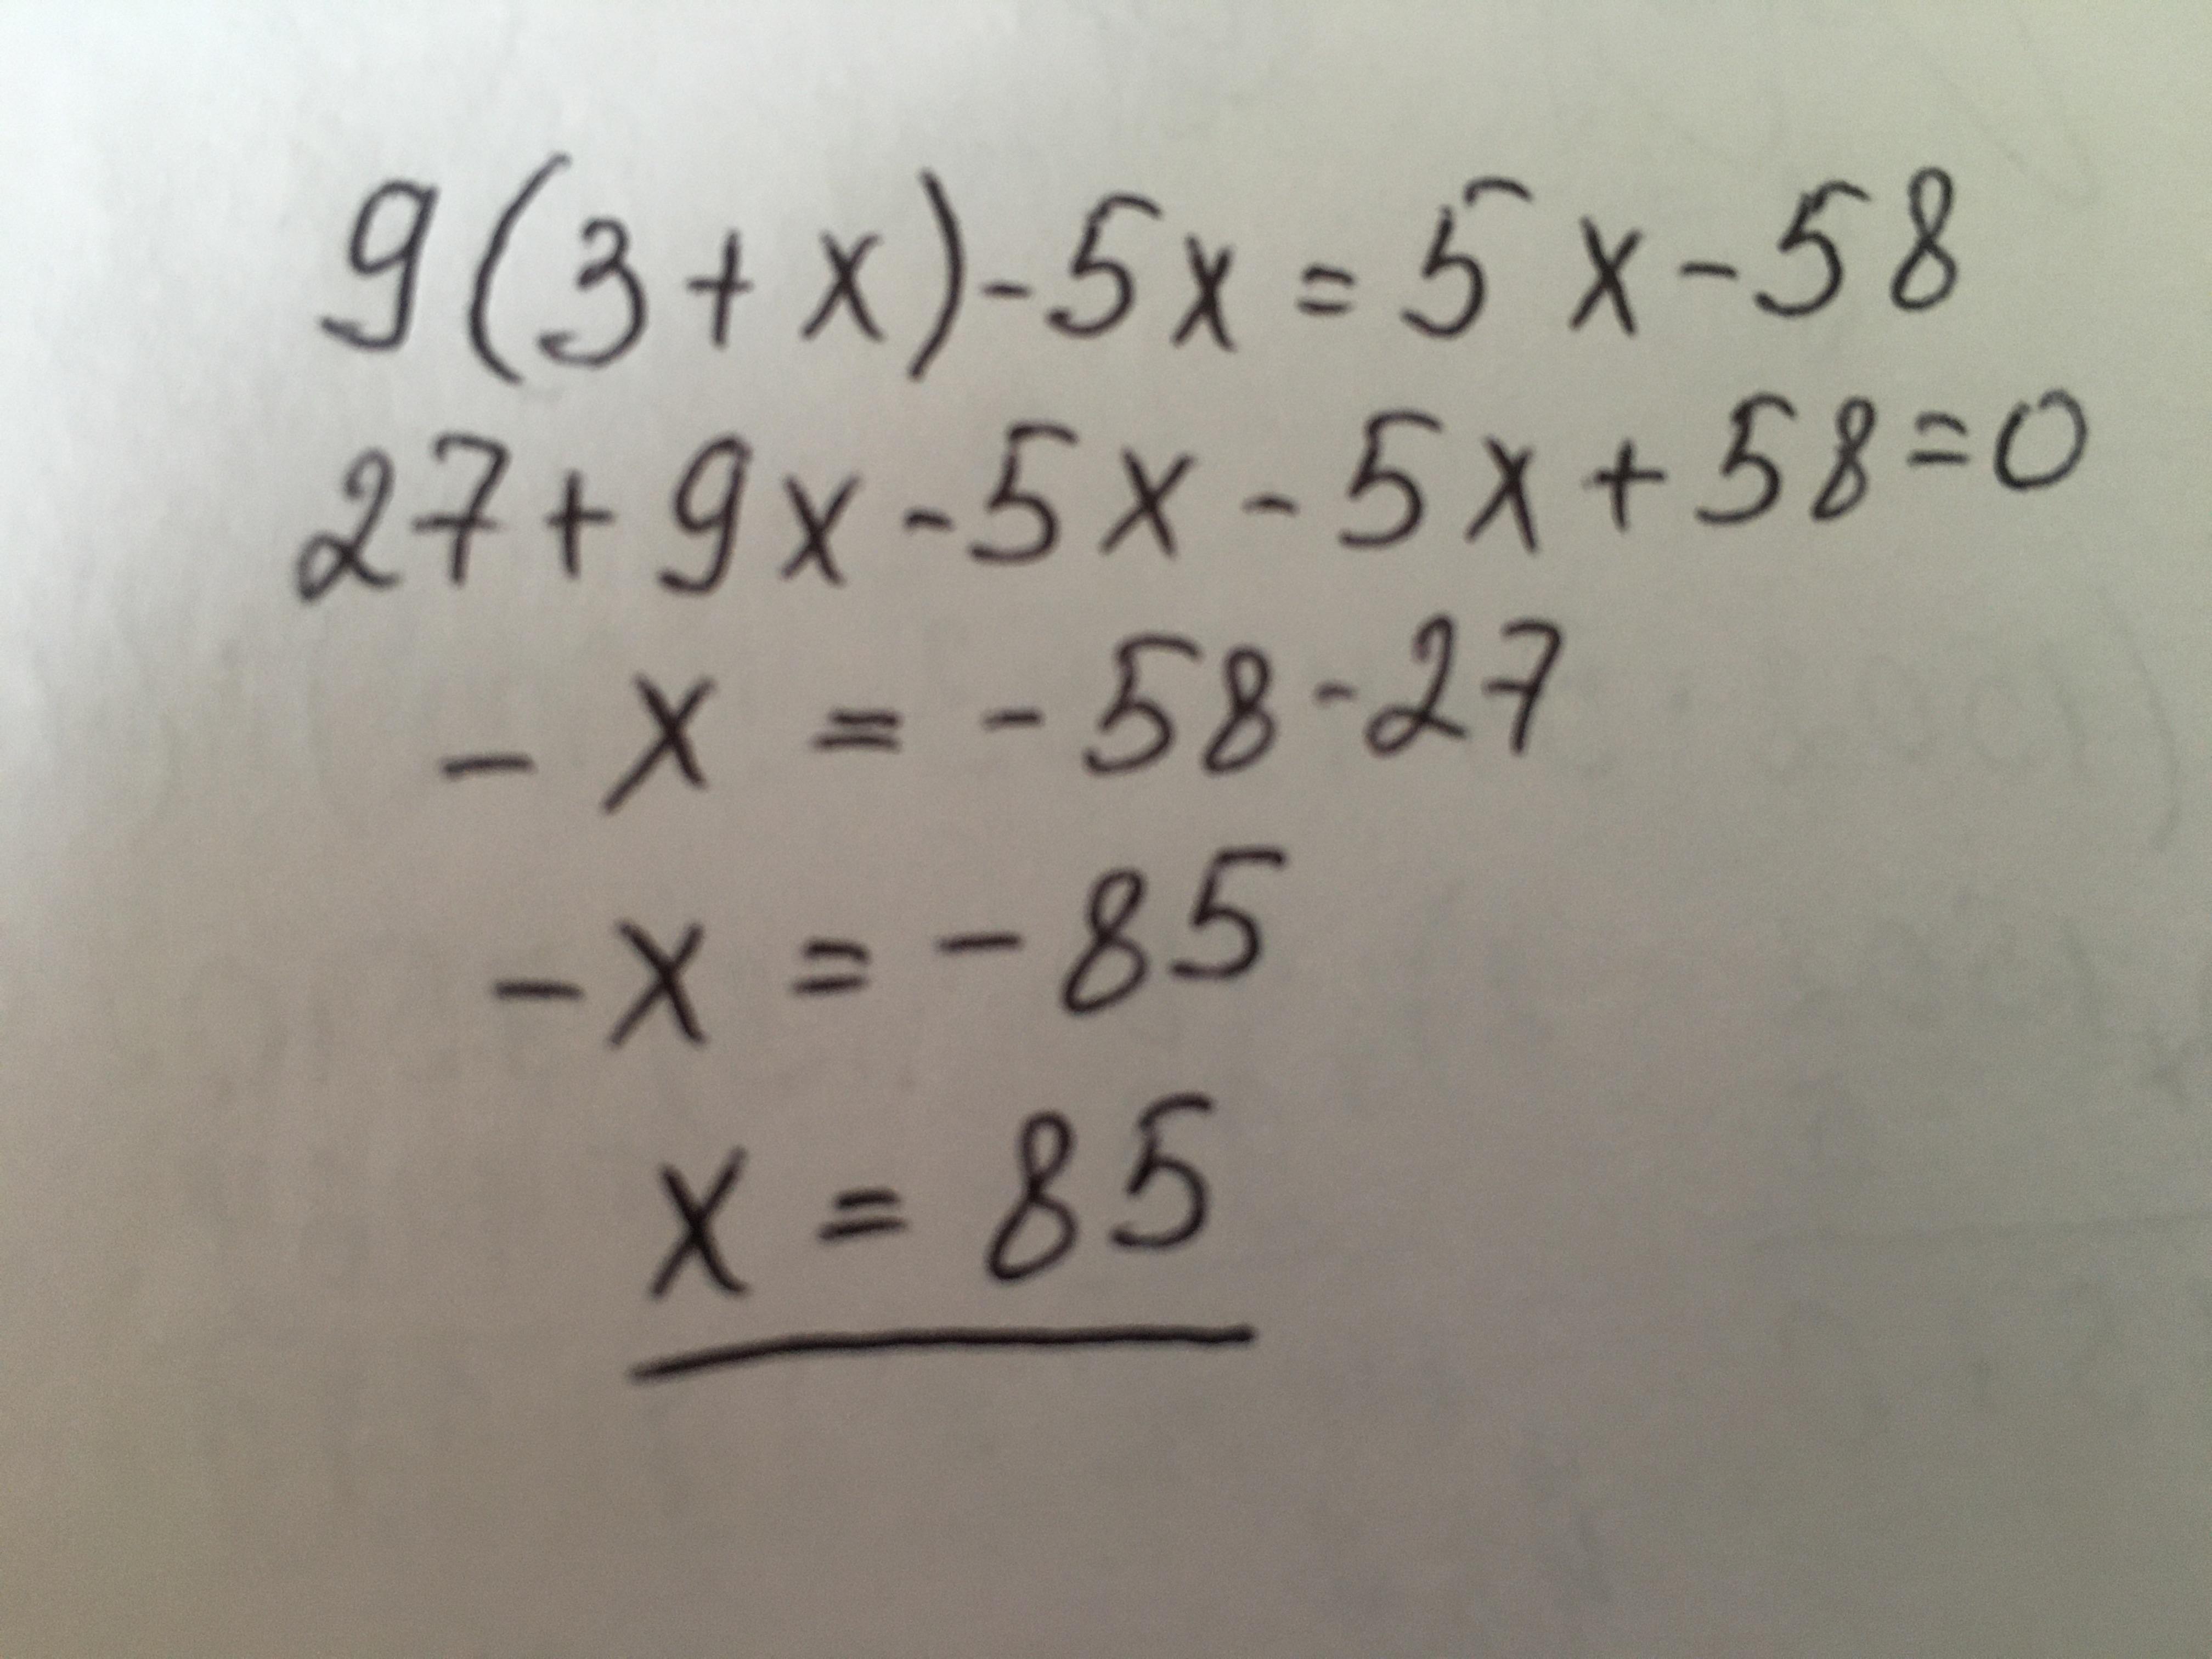 9(3+x)-5x=5x-58
27+9x-5x-5x+58=0
-x=-58-27
-x=-85
x=85